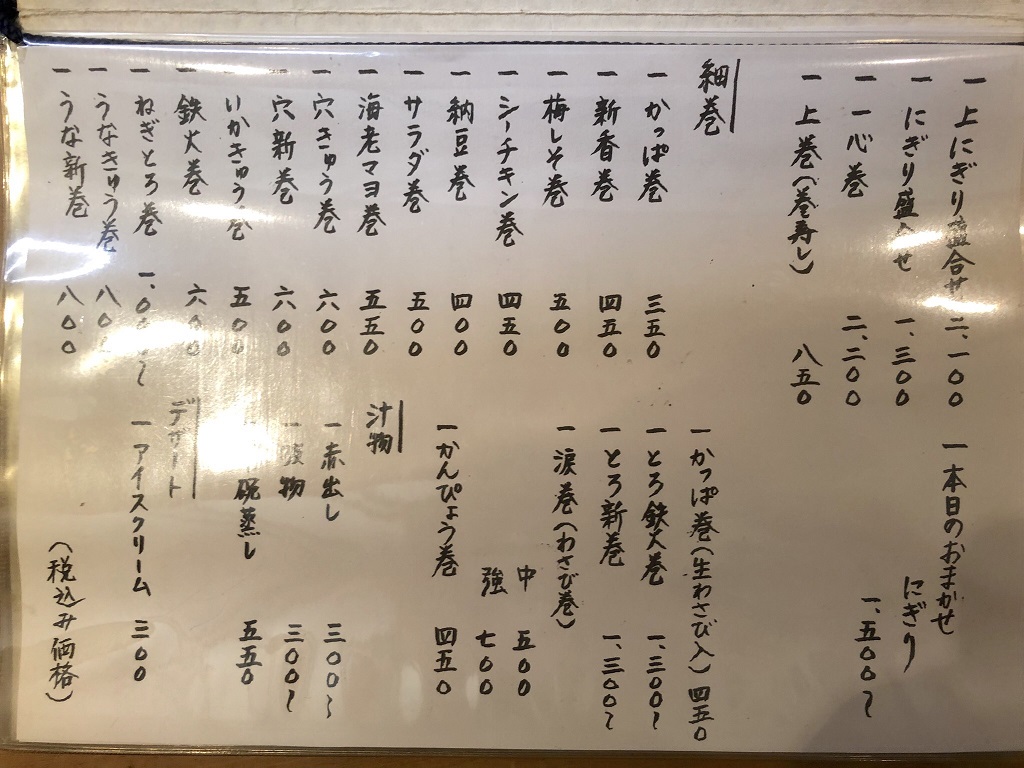 一 上にぎり盛合せ 二、一〇〇
一 にぎり盛合せ 一、三〇〇
一 一心巻 二、二〇〇
一 上巻(巻寿し) 八五〇
細巻
一 かっぱ巻 三五〇
一 新香巻 四五〇
一 梅しそ巻 五〇〇
一 シーチキン巻 四五〇
一 納豆巻 四〇〇
一 サラダ巻 五〇〇
一 海老マヨ巻 五五〇
一 穴きゅう巻 六〇〇
一 穴新巻 六〇〇
一 いかきゅう巻 五〇〇
一 鉄火巻 六〇〇
一 ねぎとろ巻 一、〇〇〇〜
一 うなきゅう巻 八〇〇
一 うな新巻 八〇〇
一 本日のおまかせ
にぎり
一、五〇〇〜
一 かっぱ巻(生わさび入) 四五〇
一 とろ鉄火巻 一、三〇〇〜
一 とろ新巻 一、三〇〇〜
一 涙巻(わさび巻)
中 五〇〇
強 七〇〇
一 かんぴょう巻 四五〇
汁物
一 赤出し 三〇〇〜
一 吸物 三〇〇〜
碗蒸し 五五〇
デザート
一 アイスクリーム 三〇〇
(税込み価格)